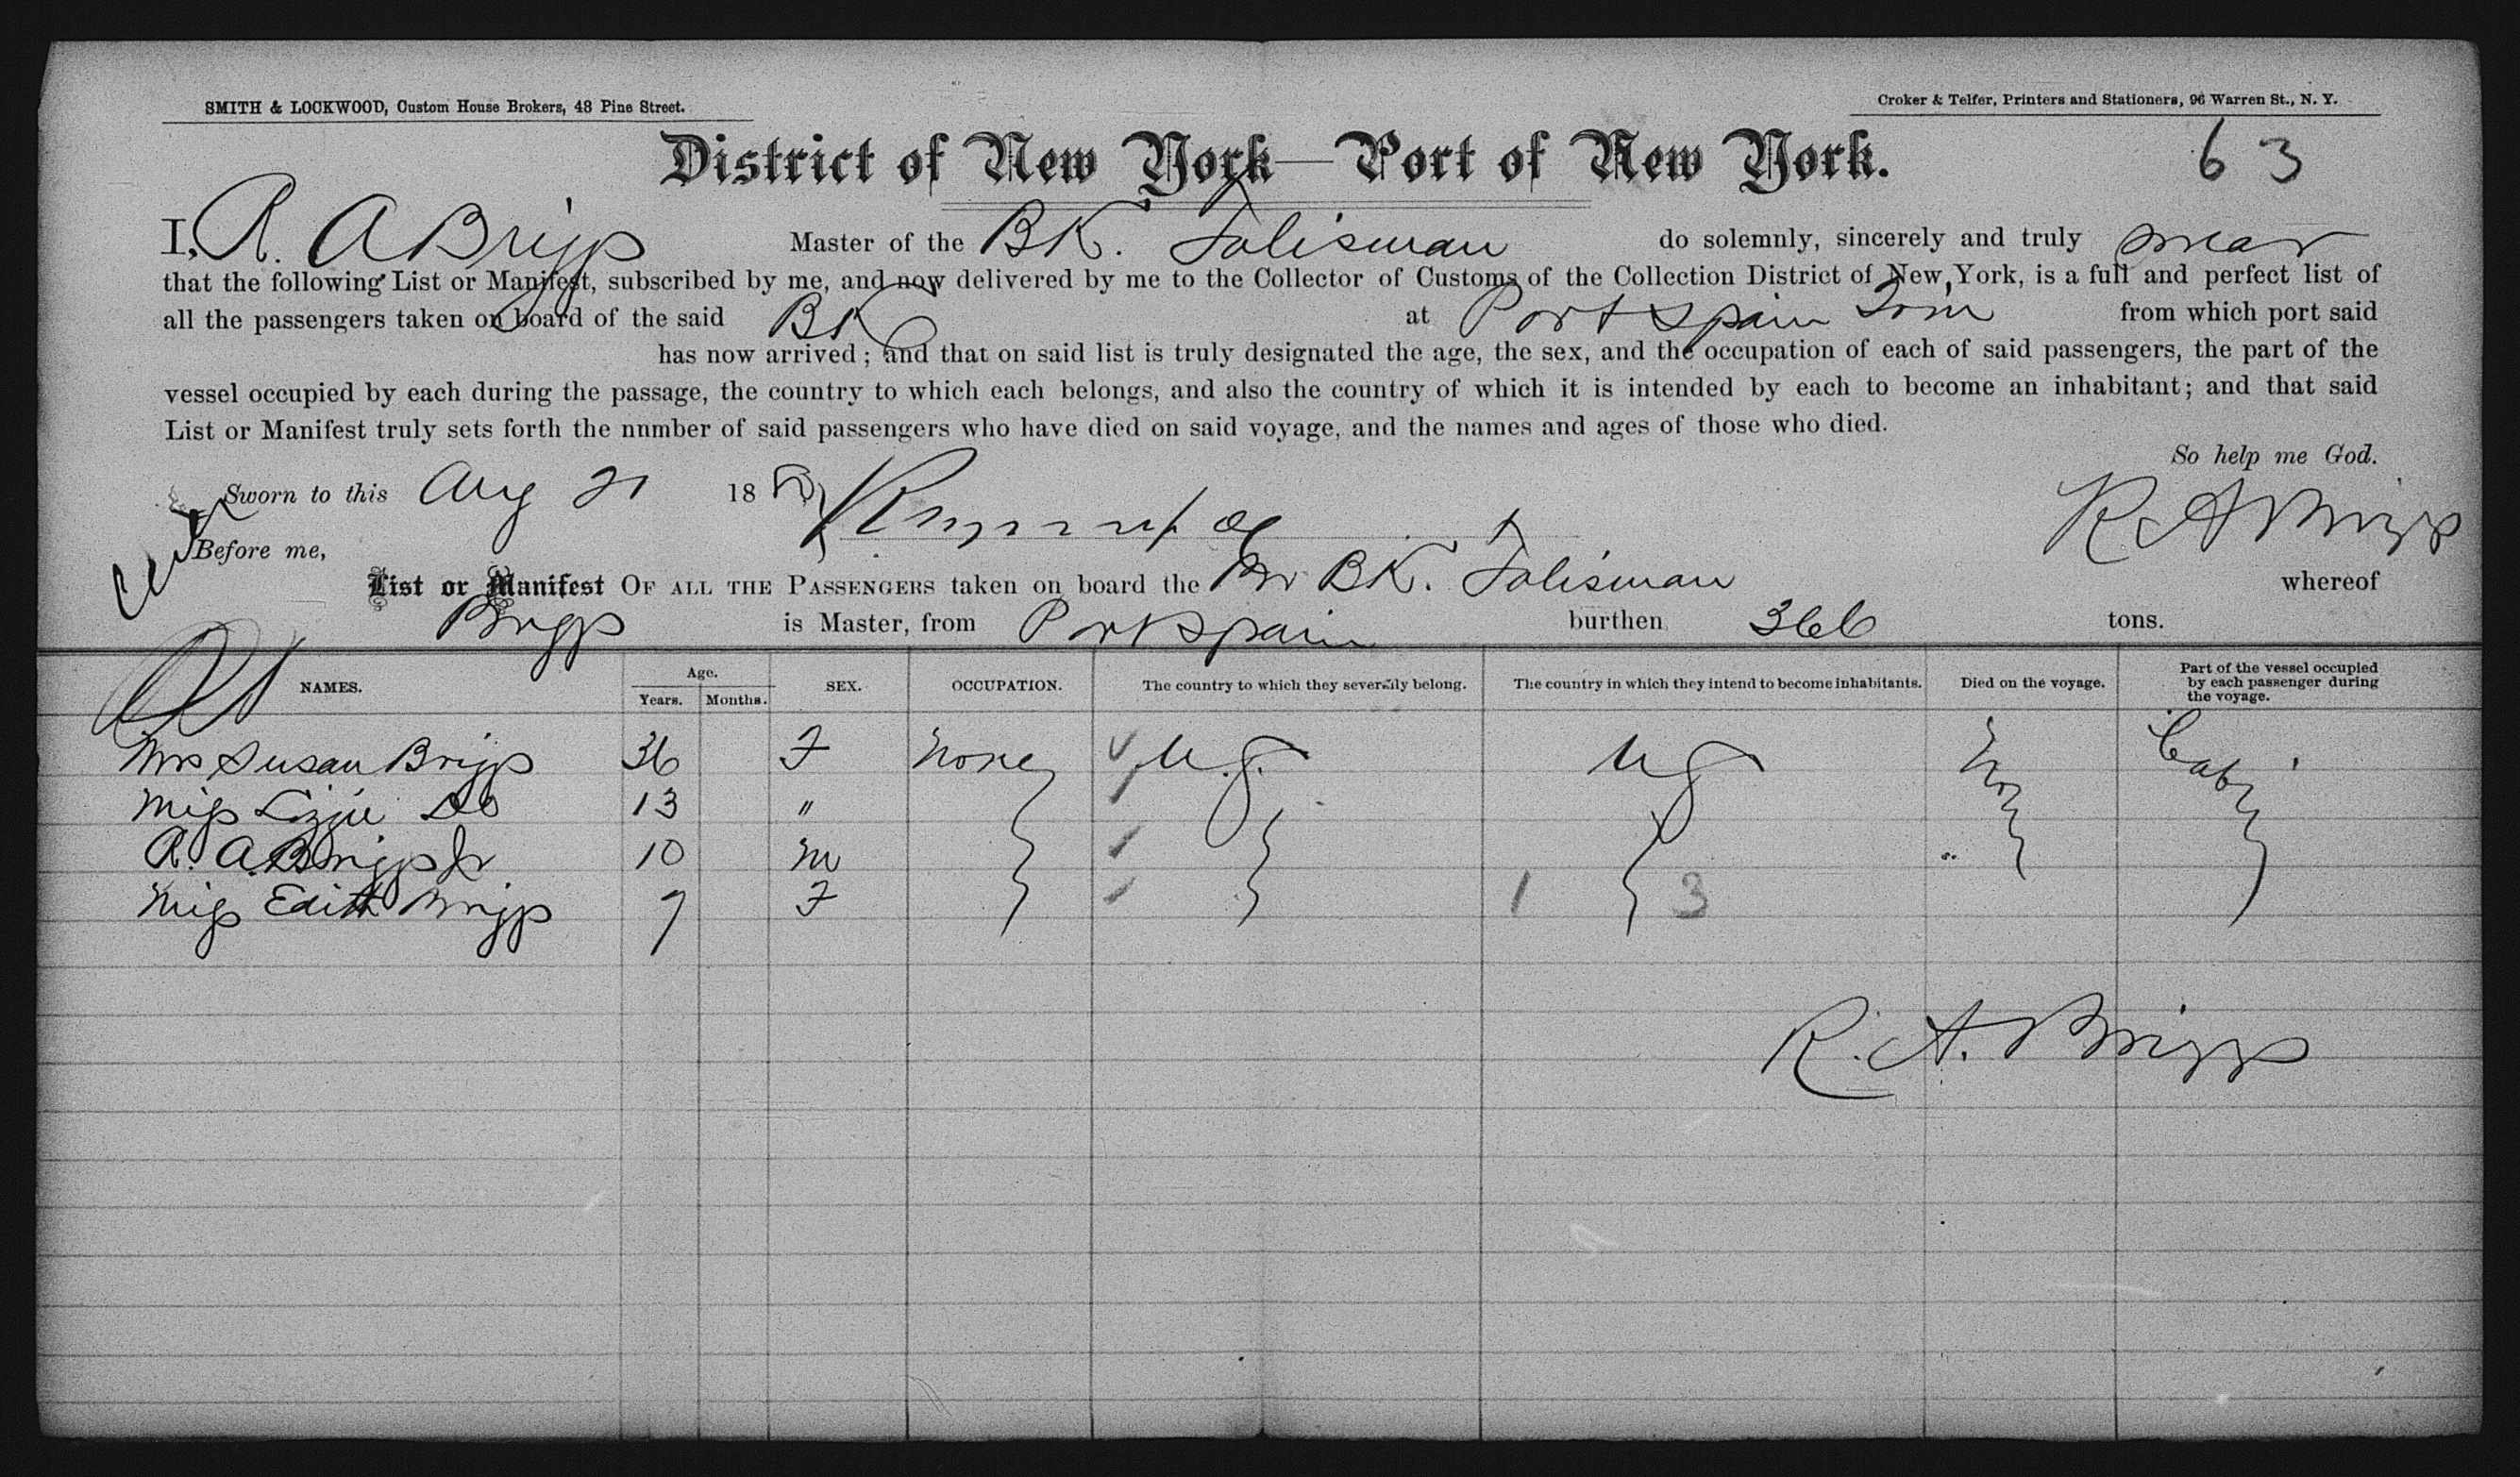 SMITH & LOCKWOOD, Custom House Brokers, 48 Pine Street.
Croker & Telfer, Printers and Stationers, 96 Warren St., N. Y.
District of New York—Port of New York.
63
I, R. A Briggs Master of the BK. Talisman do solemnly, sincerely and truly swear
that the following List or Manifest, subscribed by me, and now delivered by me to the Collector of Customs of the Collection District of New York, is a full and perfect list of
all the passengers taken on board of the said BK at Port Spain from which port said
has now arrived; and that on said list is truly designated the age, the sex, and the occupation of each of said passengers, the part of the
vessel occupied by each during the passage, the country to which each belongs, and also the country of which it is intended by each to become an inhabitant; and that said
List or Manifest truly sets forth the nnmber of said passengers who have died on said voyage, and the names and ages of those who died.
So help me God.
Sworn to this Aug 21 18
R A Briggs
Before me,
List or Manifest OF ALL THE PASSENGERS taken on board the BK. Talisman whereof
Briggs is Master, from Port Spain burthen 366 tons.
NAMES. Age. Years. Months. SEX. OCCUPATION. The country to which they severally belong. The country in which they intend to become inhabitants. Died on the voyage. Part of the vessel occupied by each passenger during the voyage.
Mrs Susan Briggs 36 F None U.S. U S Cabin
Miss Lizzie Do 13 "
R. A. Briggs Jr 10 M
Miss Edith Briggs 7 F 1 3
R. A. Briggs